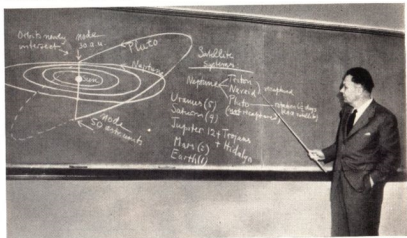 Orbits nearly
intersect
node
30 a.u.
Pluto
Neptune
Sun
node
50 astr. units
Satellite
systems
Neptune
Triton
Nereid
Pluto
(not recaptured)
Uranus (5)
Saturn (9)
Jupiter 12 + Trojans
+ Hidalgo
Mars (2)
Earth (1)